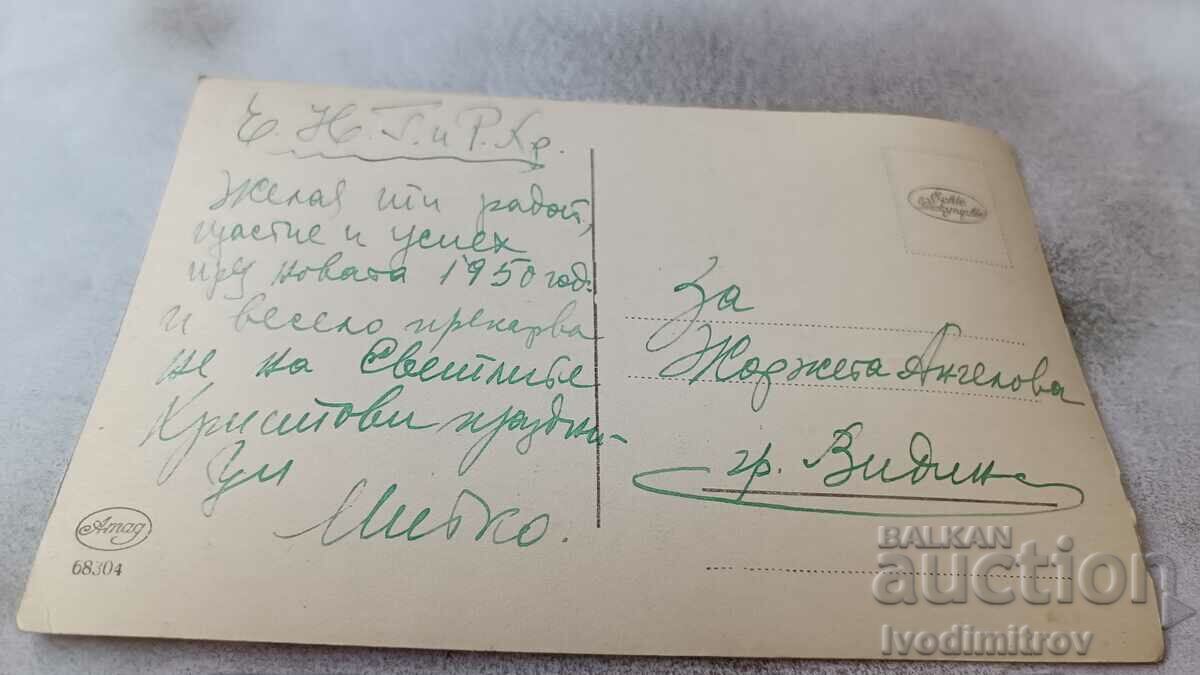 Е. Н. Г. и Р. Хр.
Желая ти радост,
щастие и успех
през новата 1950 год.
и весело прекарва
не на Светлите
Христови празни-
ци
Митко.
Amag
68304
За
Жоржета Ангелова
гр. Видин
BALKAN
auction
Ivodimitrov